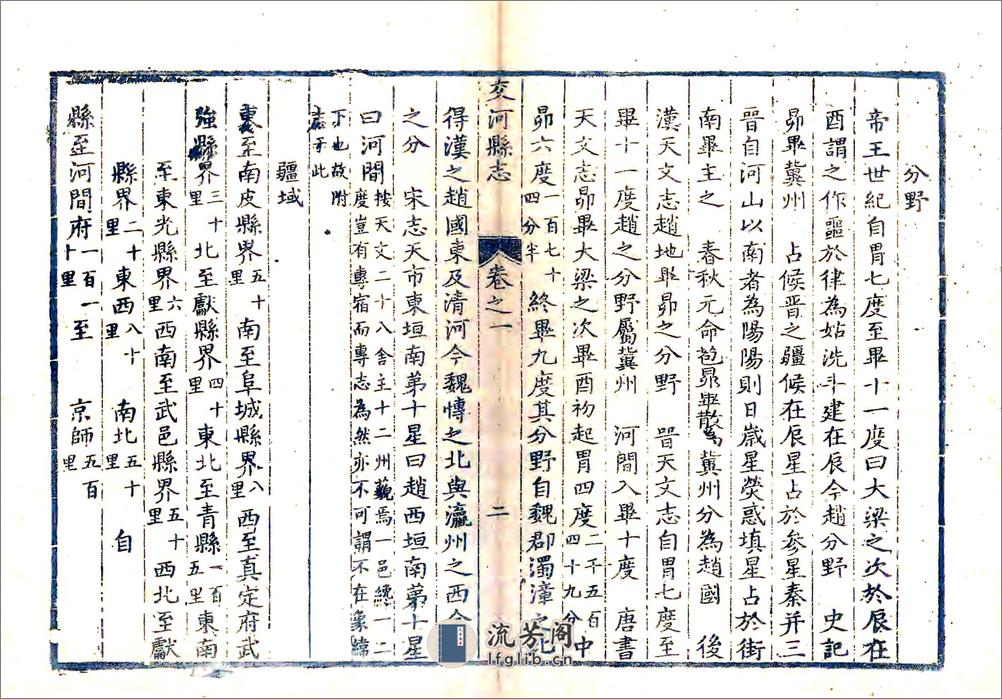 分野
帝王世紀自胃七度至畢十一度曰大梁之次於辰在
酉謂之作噩於律為姑洗斗建在辰今趙分野　史記
昴畢冀州　占候晉之疆候在辰星占於參星秦并三
晉自河山以南者為陽陽則日歲星熒惑填星占於街
南畢主之　春秋元命苞昴畢散為冀州分為趙國　後
漢天文志趙地畢昴之分野　晉天文志自胃七度至
畢十一度趙之分野屬冀州　河間入畢十度　唐書
天文志昴畢大梁之次畢酉初起胃四度二千五百四十九分中
昴六度一百七十四分半終畢九度其分野自魏郡濁漳之北
交河縣志　卷之一　二
得漢之趙國東及清河今魏愽之北與瀛州之西今
之分　宋志天市東垣南第十星曰趙西垣南第十星
曰河間按天文二十八舍主十二州藐焉一邑纔一二
度豈有專宿而專志為然亦不可謂不在象緯
下也故附
志于此
疆域
東至南皮縣界五十里南至阜城縣界八里西至真定府武
強縣界三十里北至獻縣界四十里東北至青縣一百五里東南
至東光縣界六里西南至武邑縣界五十里西北至獻
縣界二十里東西八十里　南北五十里　自
縣至河間府一百一十里至　京師五百里
流芳阁
lfglib.cn